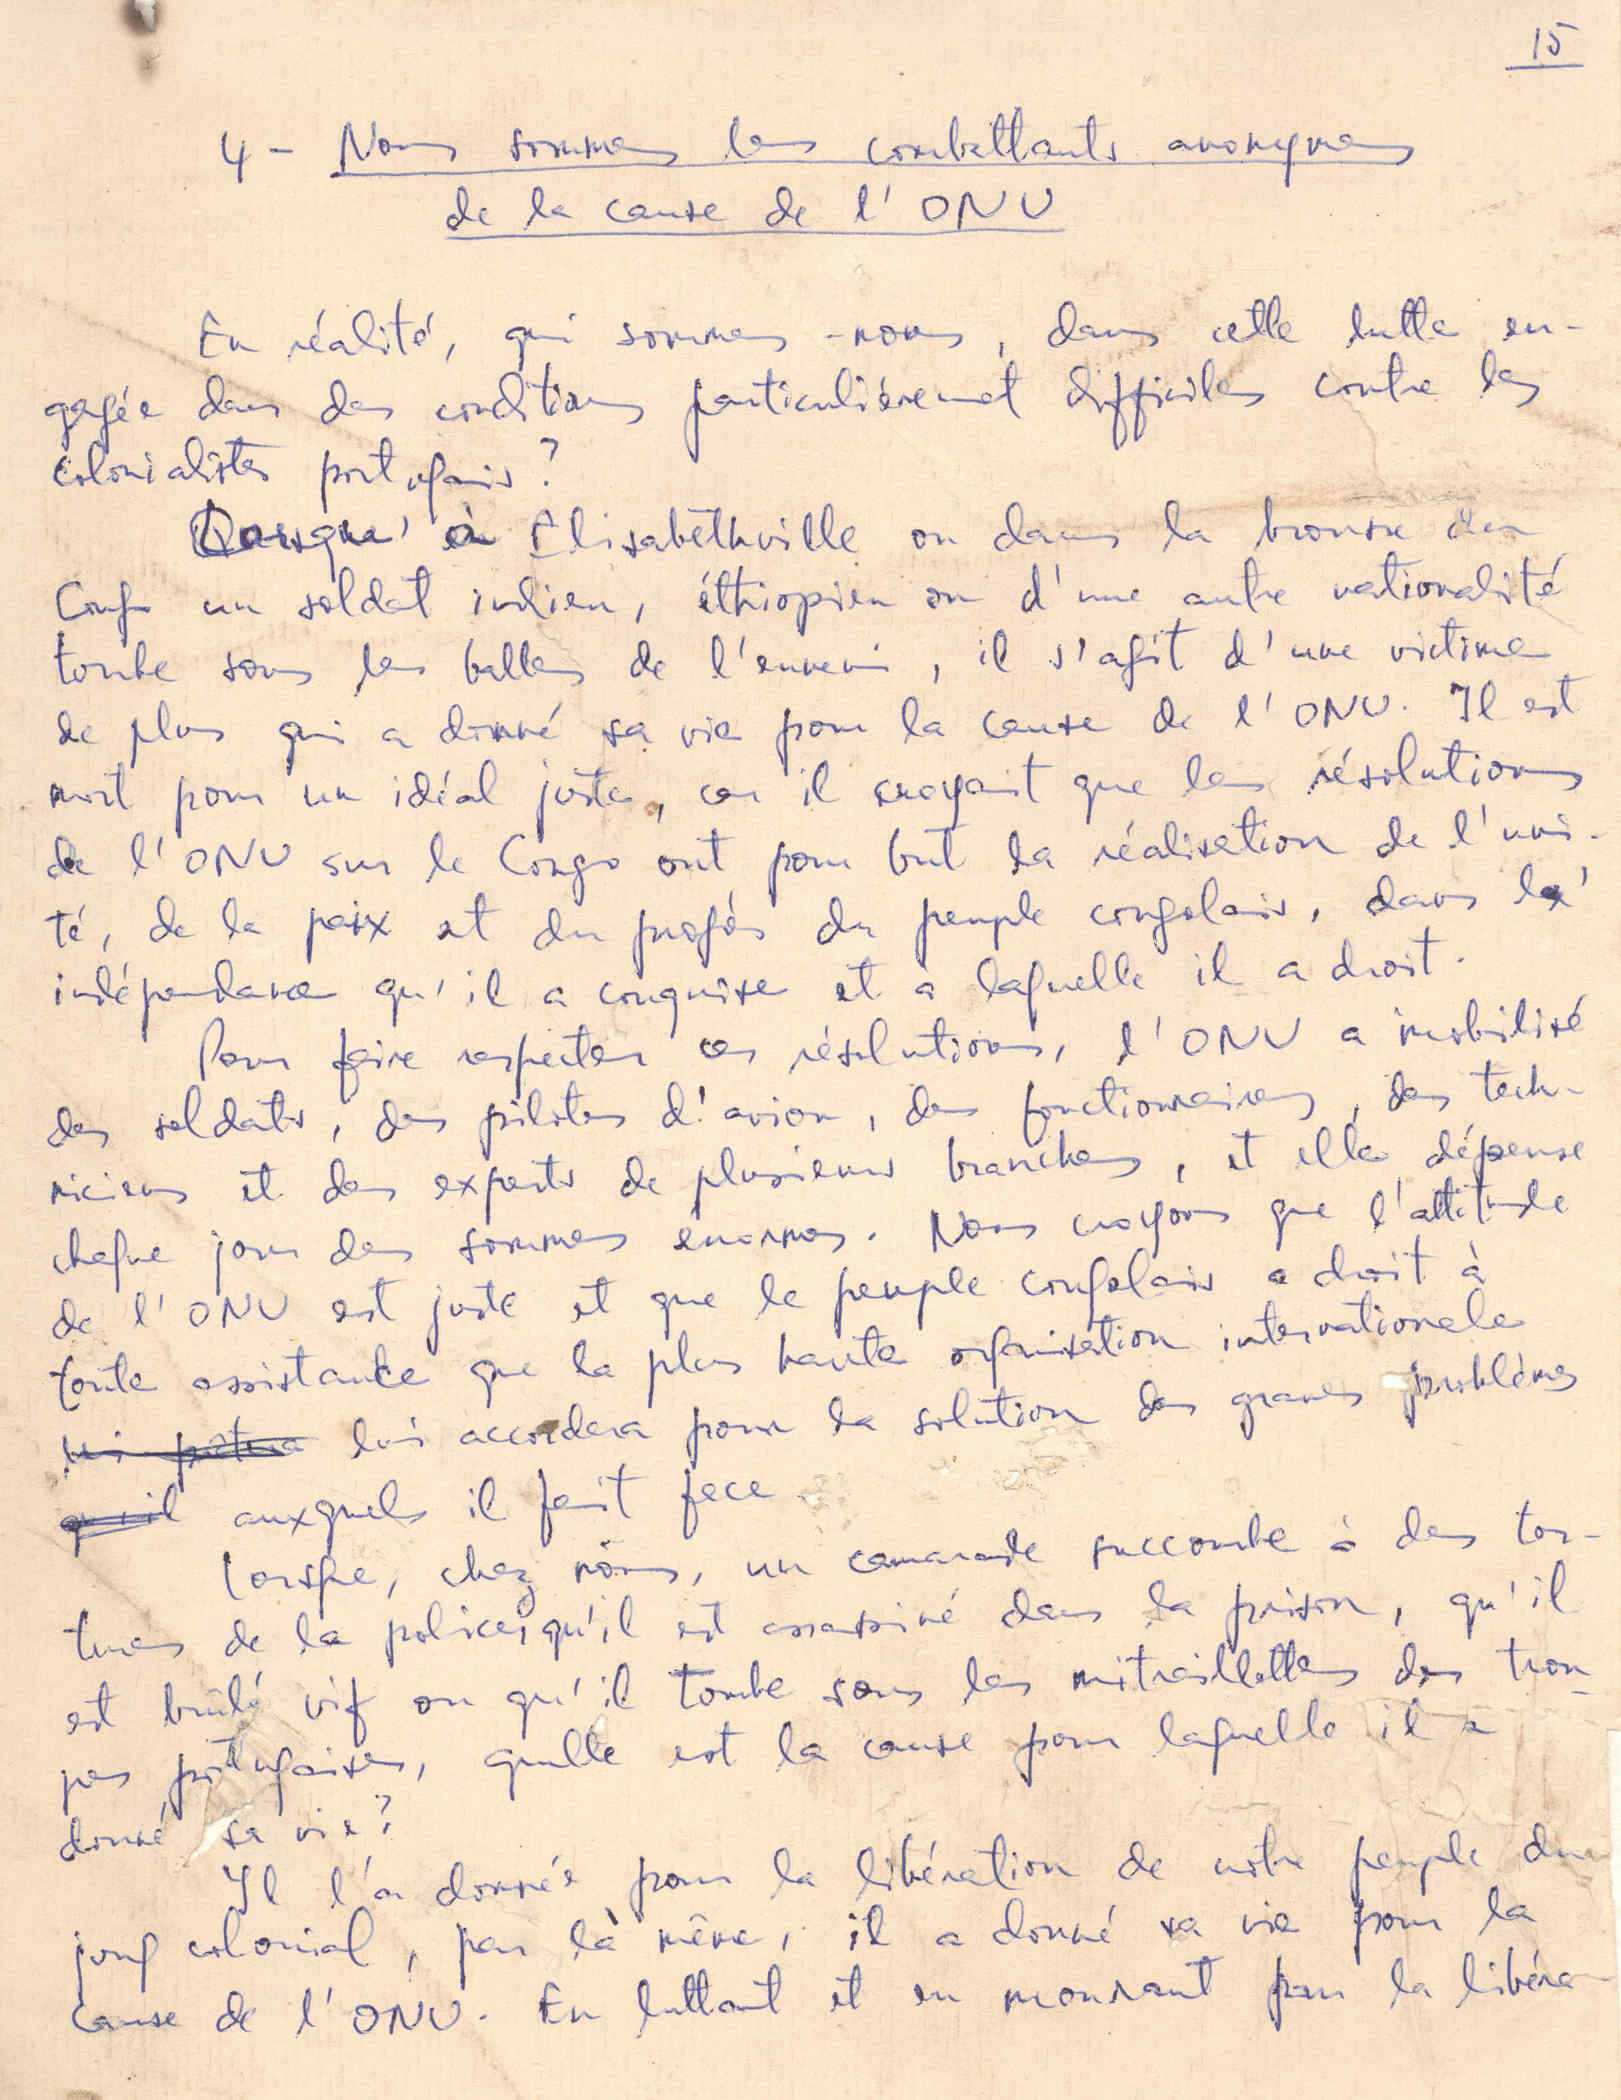 15
4 - Nous sommes les combattants anonymes
de la cause de l'ONU
En réalité, qui sommes-nous, dans cette lutte en-
gagée dans des conditions particulièrement difficiles contre les
colonialistes portugais?
Lorsque à Elisabethville ou dans la brousse du
Congo un soldat indien, éthiopien ou d'une autre nationalité
tombe sous les balles de l'ennemi, il s'agit d'une victime
de plus qui a donné sa vie pour la cause de l'ONU. Il est
mort pour un idéal juste, car il croyait que les résolutions
de l'ONU sur le Congo ont pour but la réalisation de l'uni-
té, de la paix et du progrès du peuple congolais, dans l'
indépendance qu'il a conquise et a laquelle il a droit.
Pour faire respecter ces résolutions, l'ONU a mobilisé
des soldats, des pilotes d'avion, des fonctionnaires, des tech-
niciens et des experts de plusieurs branches, et elle dépense
chaque jour des sommes enormes. Nous croyons que l'attitude
de l'ONU est juste et que le peuple congolais a droit à
toute assistance que la plus haute organisation internationale
lui prêtera lui accordera pour la solution des graves problèmes
qu'il auxquels il fait face.
Lorsque, chez nous, un camarade succombe à des tor-
tures de la police, qu'il est assassiné dans la prison, qu'il
est brûlé vif ou qu'il tombe sous les mitraillettes des trou-
pes portugaises, quelle est la cause pour laquelle il a
donné sa vie?
Il l'a donnée pour la libération de notre peuple du
joug colonial, par là même, il a donné sa vie pour la
cause de l'ONU. En luttant et en mourant pour la libéra-